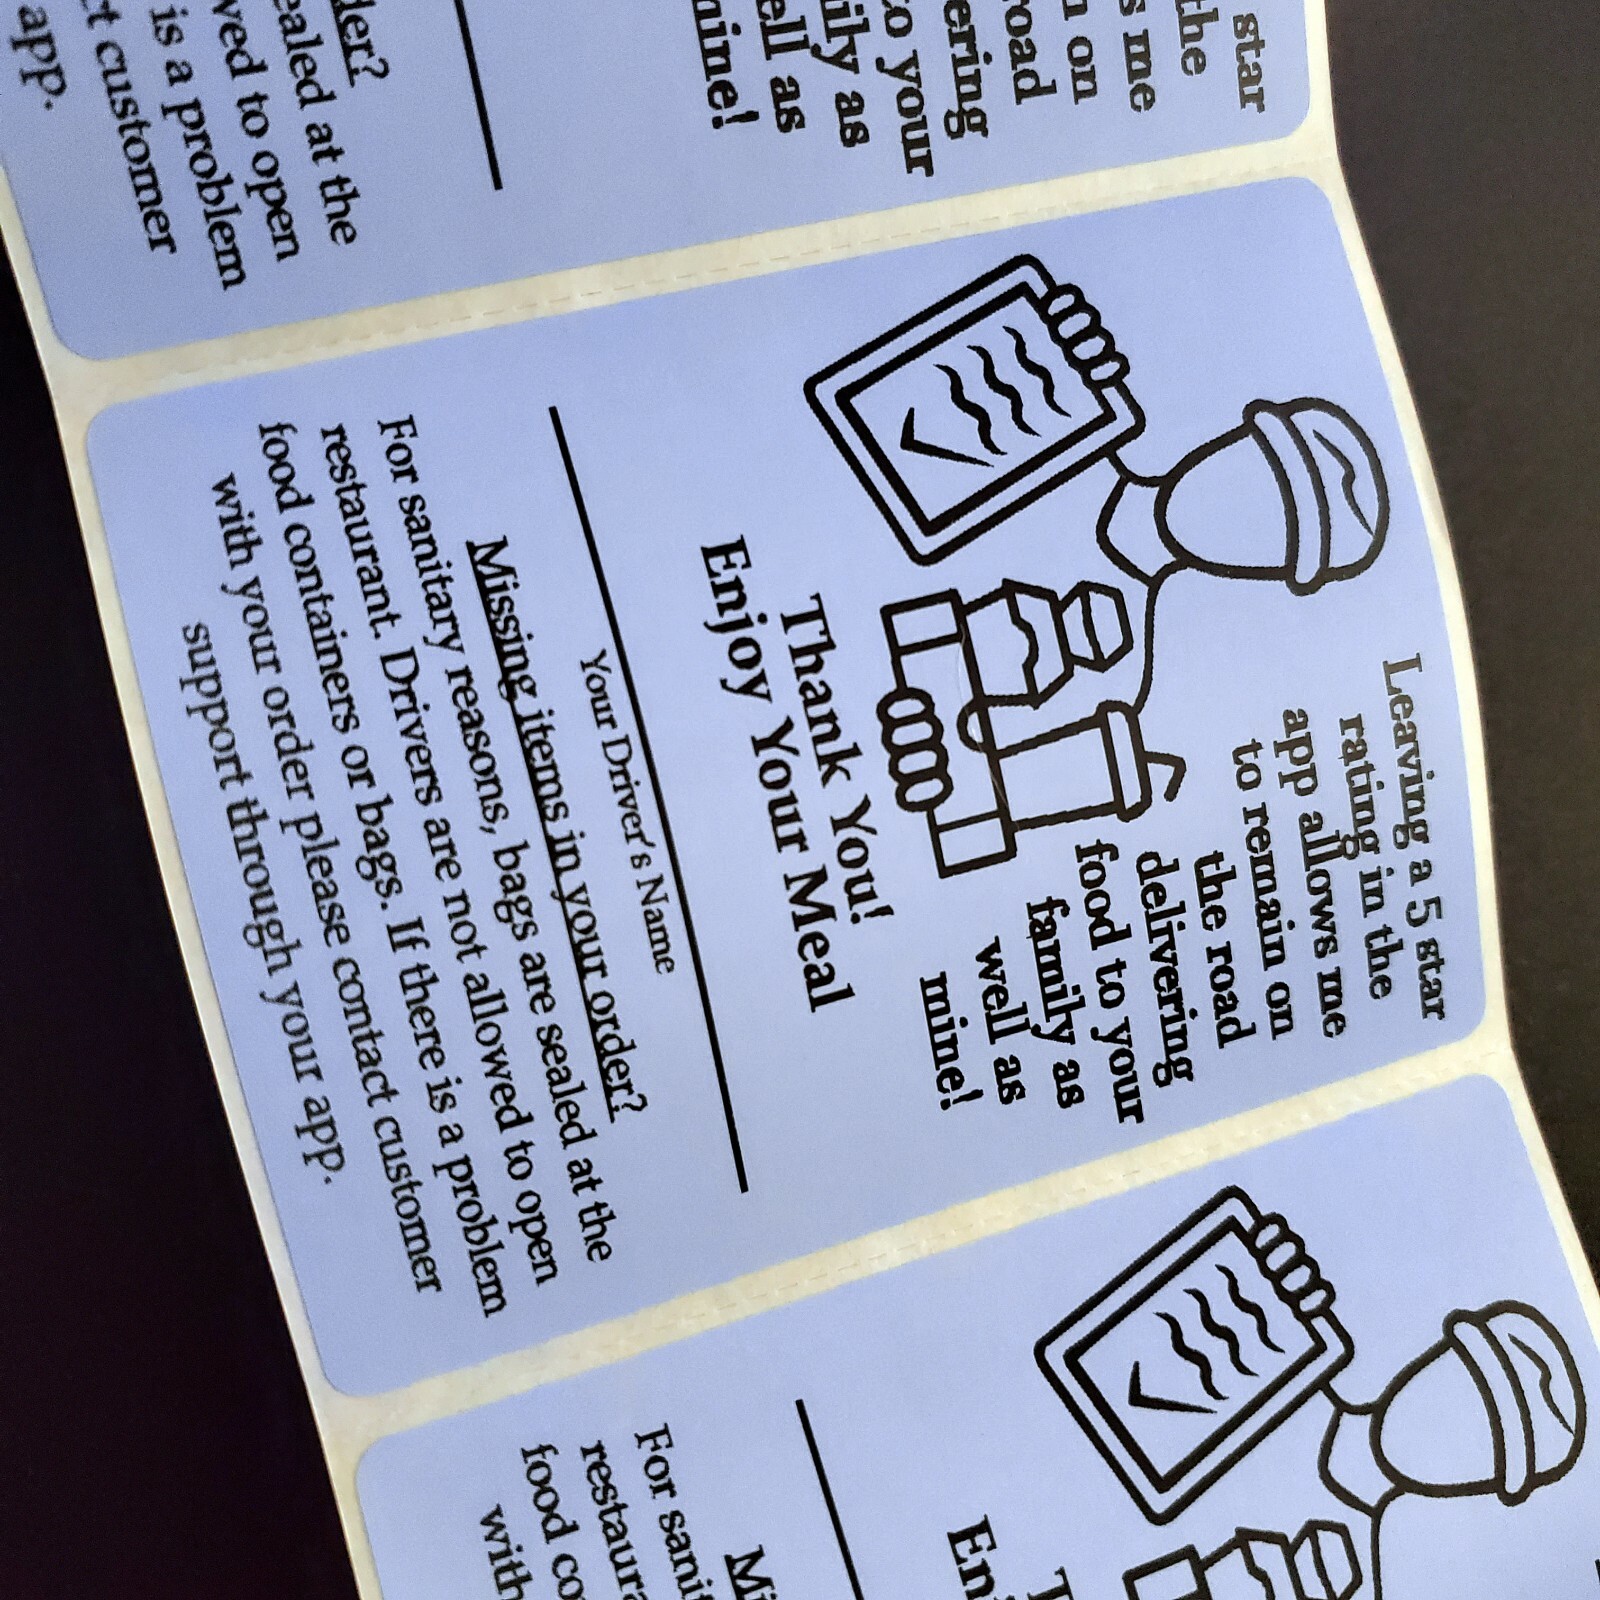 star
the
s me
n on
road
ering
to your
ily as
ell as
mine!
der?
ealed at the
wed to open
is a problem
ct customer
app.
Leaving a 5 star
rating in the
app allows me
to remain on
the road
delivering
food to your
family as
well as
mine!
Thank You!
Enjoy Your Meal
Your Driver's Name
Missing items in your order?
For sanitary reasons, bags are sealed at the
restaurant. Drivers are not allowed to open
food containers or bags. If there is a problem
with your order please contact customer
support through your app.
T
Enj
Mi
For sanit
restaura
food co
with